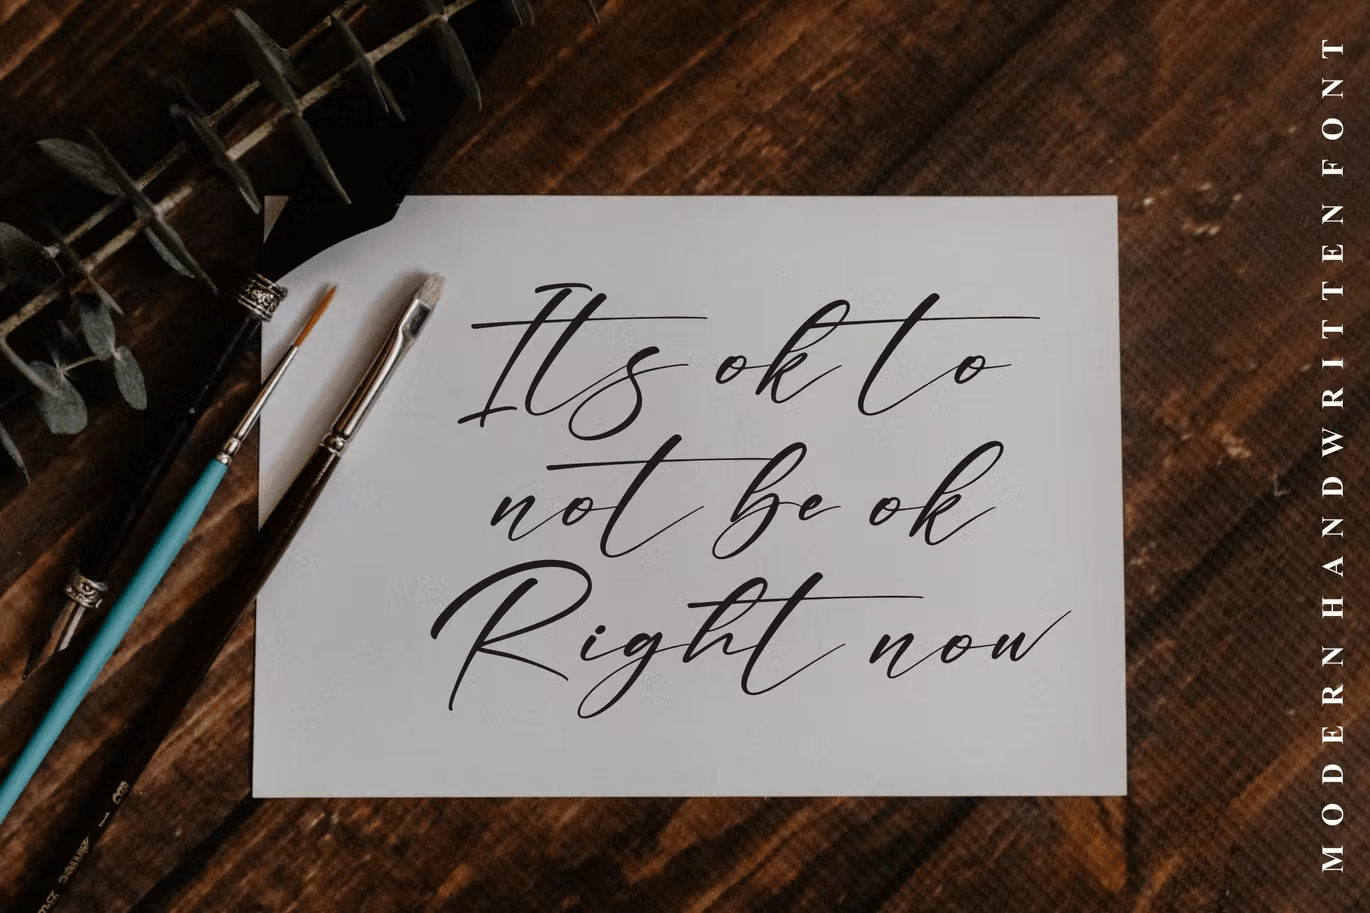 Its ok to
not be ok
Right now
MODERN HANDWRITTEN FONT